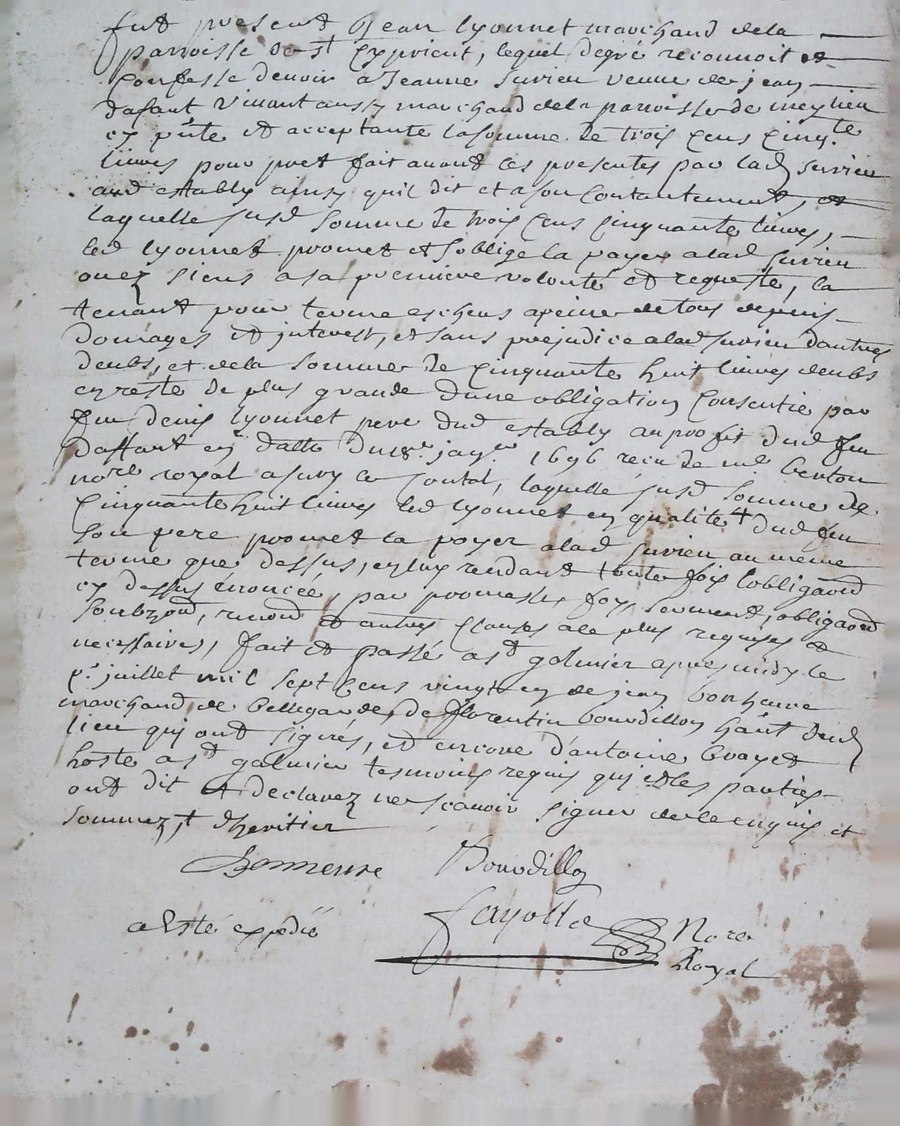 fut present Jean Lyonnet marchand de la
parroisse de St Cyprient, lequel de gré reconnoit et
confesse devoir a Jeanne Survien veuve de jean
dafaut vivant aussy marchand de la parroisse de meylieu
cy pnte et acceptante la somme de trois cens cinqte
livres pour pret fait avant ces presentes par lad Survien
aud estably ainsy quil dit et a son contantement, et
laquelle susd somme de trois cens cinquante livres,
led lyonnet promet et soblige la payer a lad Survien
ou ez siens a sa premiere volonté et requeste, la
tenant pour terme escheus a peine de tous depens
domages et interest, et sans prejudice a lad survien dautres
deubs, et de la somme de cinquante huit livres deubs
en reste de plus grande dune obligation consentie par
feu denis Lyonnet pere dud estably au profit dud feu
daffaut en datte du 18e jayer 1696 receu de me
nore royal a sury le contal, laquelle susd somme de
cinquante huit livres led lyonnet en qualité dud feu
son pere promet la payer a lad survien au meme
terme que dessus, en luy rendant toute fois lobligaon
cy dessus énoncée, par promesse foy, serment, obligaon
soubzon, renon et autres clauses a le plus requises et
necessaires, fait et passé a st galmier apres midy le
pr juillet mil sept cens vingt en de jean bonheure
marchand de bellegarde, de florentin bourdillon hant dud
lieu qui ont signés, et encore dantoine
hoste a st galmier tesmoins requis qui et les parties
ont dit et declarez ne scavoir signer de ce enquis et
sommez, st dheritier
Bonneure Bourdillon
a Esté expedié
fayolle Nore
Royal